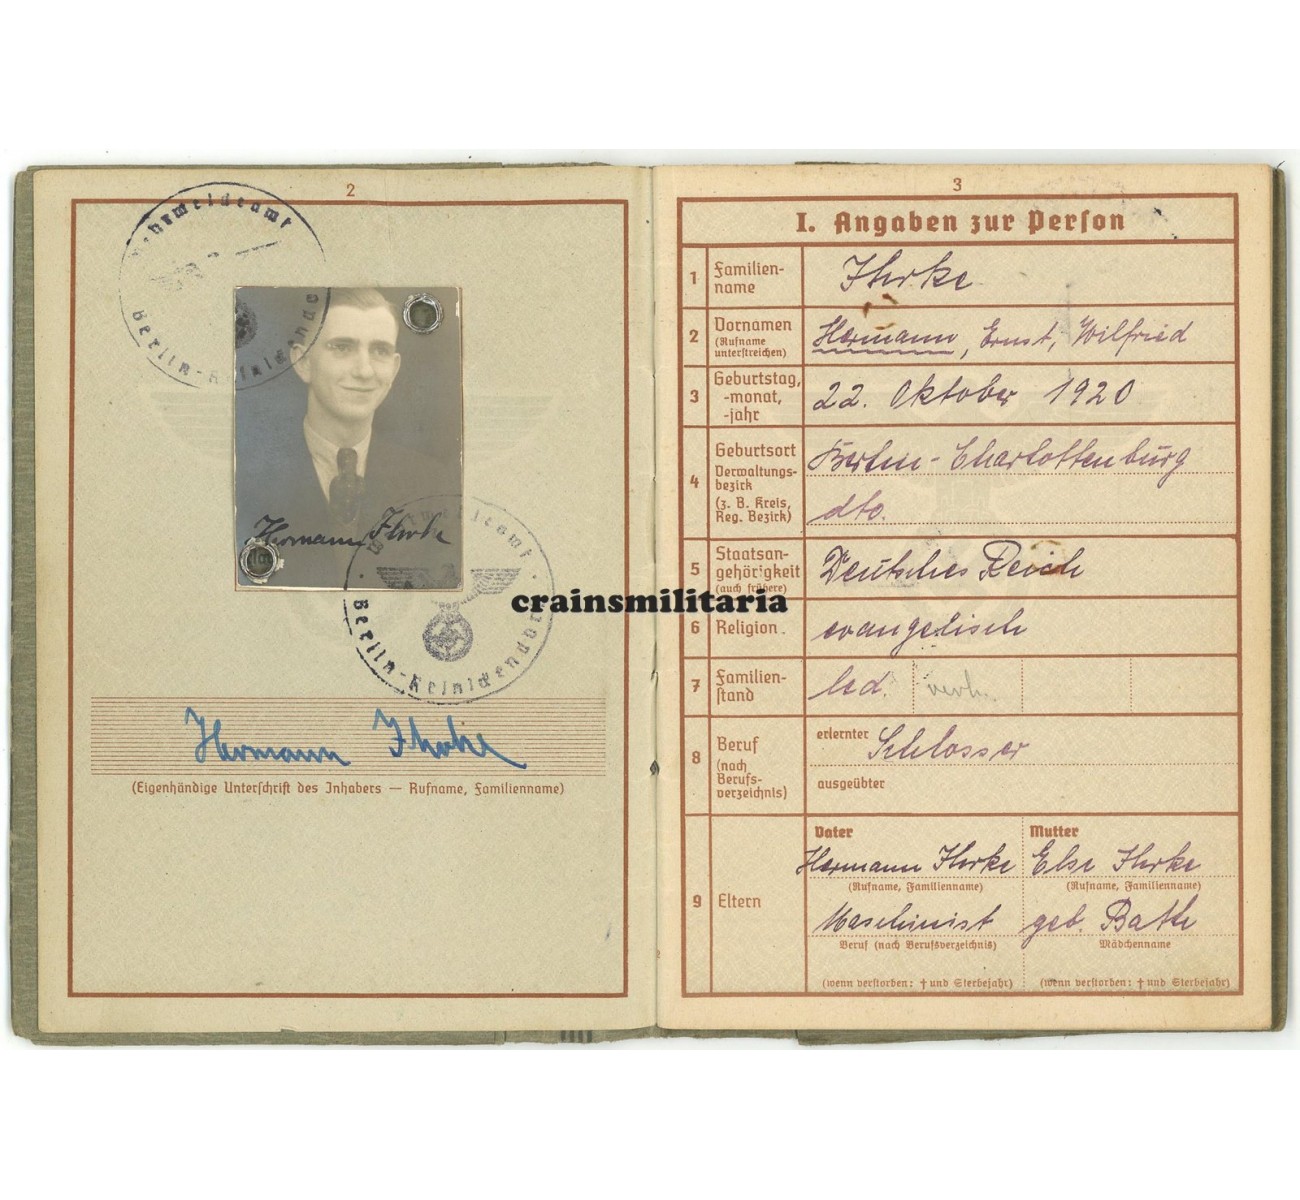 2
Wehrmeldeamt
Berlin-Reinickendorf
Hermann Ihrke
Wehrmeldeamt
Berlin-Reinickendorf
Hermann Ihrke
(Eigenhändige Unterschrift des Inhabers — Rufname, Familienname)
crainsmilitaria
3
I. Angaben zur Person
1 Familien-
name
Ihrke
2 Vornamen
(Rufname
unterstreichen)
Hermann, Ernst, Wilfried
3 Geburtstag,
-monat,
-jahr
22. Oktober 1920
4 Geburtsort
Verwaltungs-
bezirk
(z. B. Kreis,
Reg. Bezirk)
Berlin-Charlottenburg
dto.
5 Staatsan-
gehörigkeit
(auch frühere)
Deutsches Reich
6 Religion.
evangelisch
7 Familien-
stand
led. verh.
8 Beruf
(nach
Berufs-
verzeichnis)
erlernter Schlosser
ausgeübter
9 Eltern
Vater Mutter
Hermann Ihrke Else Ihrke
(Rufname, Familienname) (Rufname, Familienname)
Maschinist geb. Bathe
Beruf (nach Berufsverzeichnis) Mädchenname
(wenn verstorben: † und Sterbejahr) (wenn verstorben: † und Sterbejahr)